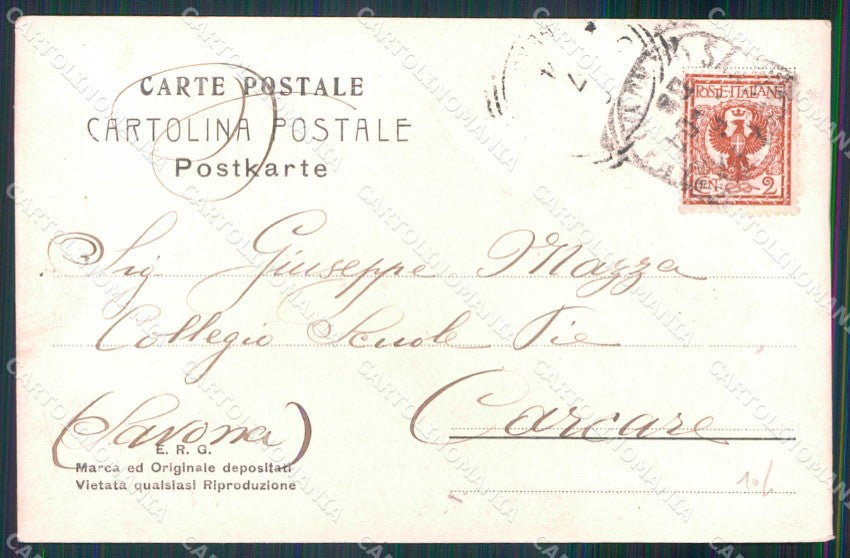 CARTE POSTALE
CARTOLINA POSTALE
Postkarte
POSTE ITALIANE
CEN. 2
Sig Giuseppe Mazza
Collegio Scuole Pie
Carcare
(Savona)
E. R. G.
Marca ed Originale depositati
Vietata qualsiasi Riproduzione
CARTOLINOMANIA